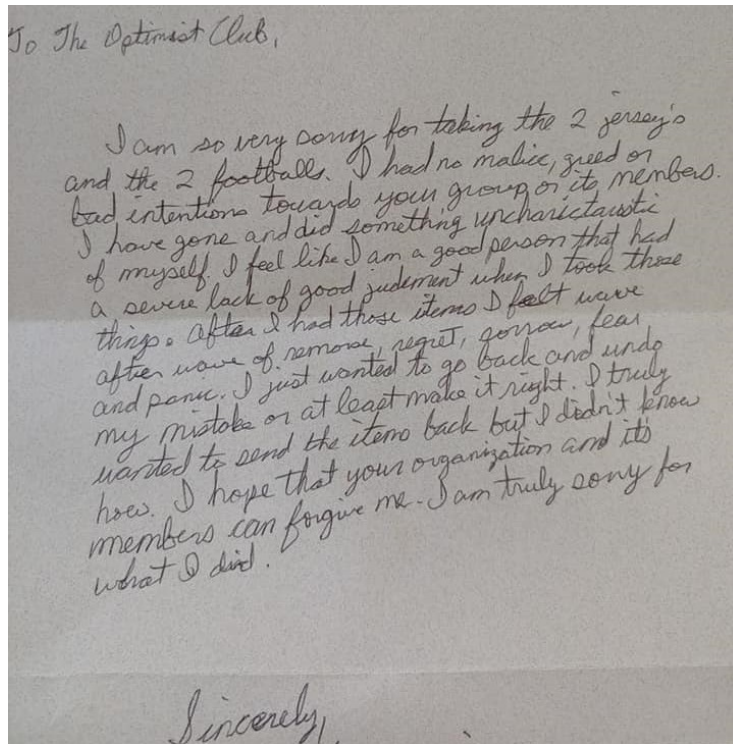 To The Optimist Club,
I am so very sorry for taking the 2 jersey's
and the 2 footballs. I had no malice, greed or
bad intentions towards your group or its members.
I have gone and did something uncharictaristic
of myself. I feel like I am a good person that had
a severe lack of good judement when I took those
things. After I had those items I felt wave
after wave of remorse, regret, sorrow, fear
and panic. I just wanted to go back and undo
my mistake or at least make it right. I truly
wanted to send the items back but I didn't know
how. I hope that your organization and it's
members can forgive me. I am truly sorry for
what I did.
Sincerely,